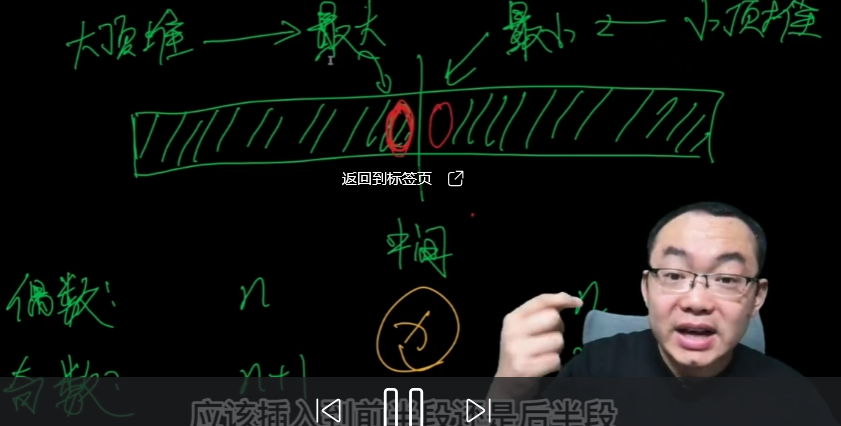 大顶堆 最大 最小 小顶堆
返回到标签页
中间
偶数: n x n
奇数: n+1
应该插入到前半段还是后半段